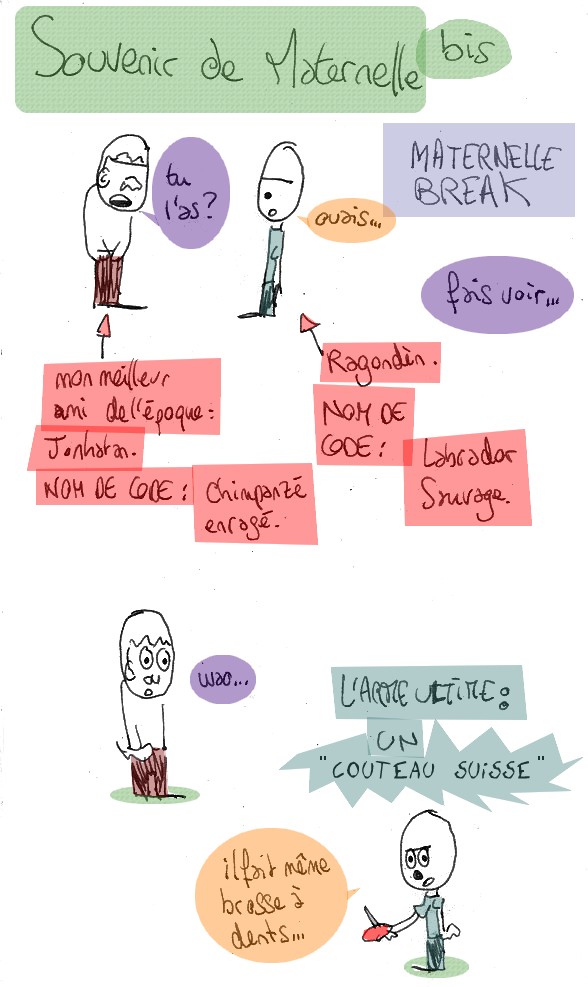 Souvenir de Maternelle
bis
MATERNELLE
BREAK
tu
l'as?
ouais...
fais voir...
mon meilleur
ami de l'époque:
Jonhatan.
NOM DE CODE:
Chimpanzé
enragé.
Ragondin.
NOM DE
CODE:
Labrador
Sauvage.
wao...
L'ARME ULTIME:
UN
"COUTEAU SUISSE"
il fait même
brosse à
dents...